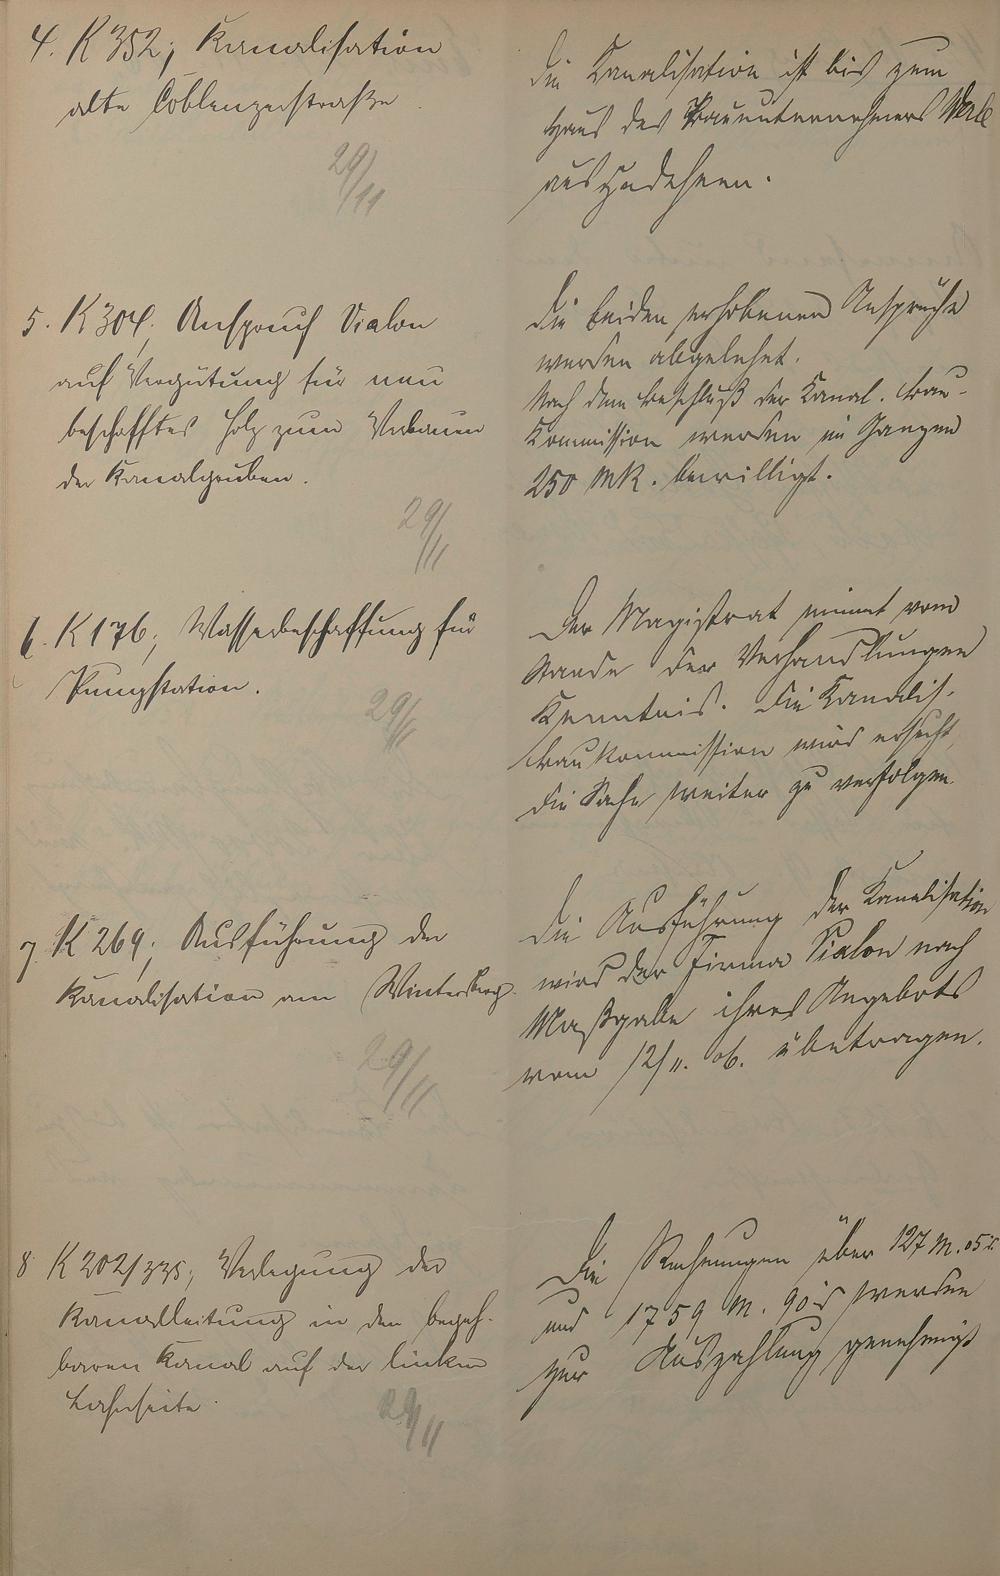 4. K 352; Kanalisation
alte Coblenzerstraße.
29/11
Die Kanalisation ist bis zum
Haus des Bauunternehmers
auszudehnen.
5. K 304; Anspruch Vialon
auf Vergütung für neu
beschafftes Holz zum Verbauen
der Kanalgruben.
29/11
Die beiden erhobenen Ansprüche
werden abgelehnt.
Nach dem Beschluß der Kanal. Bau-
Kommission werden im Ganzen
250 MK. bewilligt.
6. K 176; Wasserbeschaffung für
Pumpstation.
29/11
Der Magistrat nimmt vom
Stande der Verhandlungen
Kenntnis. Die Kanalis.
Baukommission wird ersucht,
die Sache weiter zu verfolgen.
7 K 269; Ausführung der
Kanalisation am Wintersberg.
29/11
Die Ausführung der Kanalisation
wird der Firma Vialon nach
Maßgabe ihres Angebots
vom 12/11. 06. übertragen.
8 K 202/335; Verlegung der
Kanalleitung in den begeh-
baren Kanal auf der linken
Lahnseite.
29/11
Die Rechnungen über 127 M. 05
und 1759 M. 90 werden
zur Auszahlung genehmigt